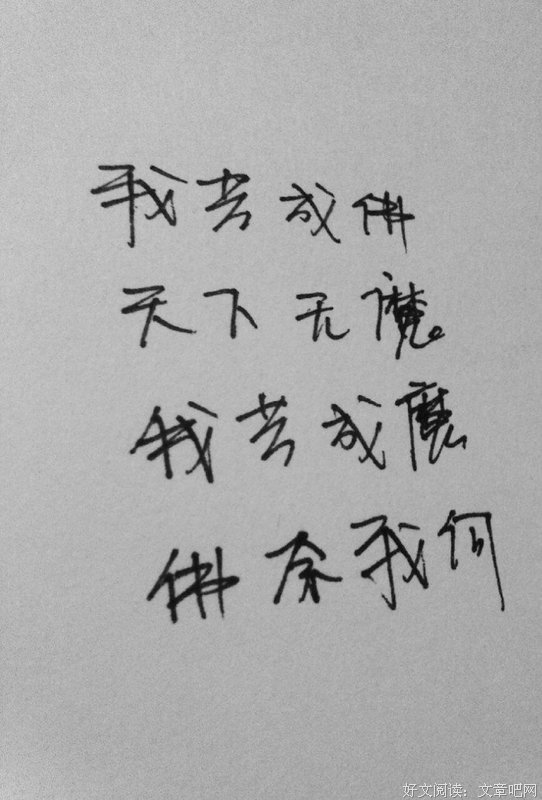 我若成佛
天下无魔。
我若成魔
佛奈我何
好文阅读：文章吧网